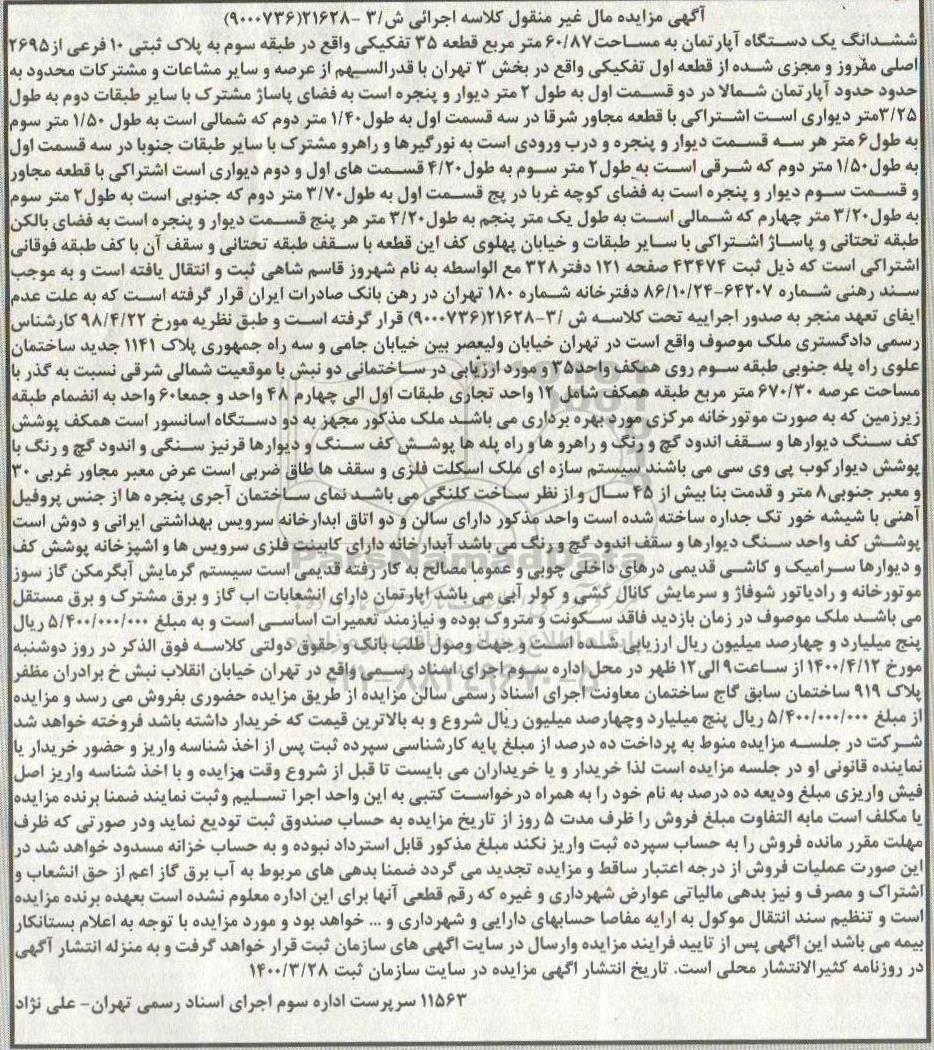 آگهی مزایده مال غیر منقول کلاسه اجرائی ش/۳ -۲۱۶۲۸(۹۰۰۰۷۳۶)
ششدانگ یک دستگاه آپارتمان به مساحت۶۰/۸۷ متر مربع قطعه ۳۵ تفکیکی واقع در طبقه سوم به پلاک ثبتی ۱۰ فرعی از۲۶۹۵
اصلی مفروز و مجزی شده از قطعه اول تفکیکی واقع در بخش ۳ تهران با قدرالسهم از عرصه و سایر مشاعات و مشترکات محدود به
حدود حدود آپارتمان شمالا در دو قسمت اول به طول ۲ متر دیوار و پنجره است به فضای پاساژ مشترک با سایر طبقات دوم به طول
۳/۲۵متر دیواری است اشتراکی با قطعه مجاور شرقا در سه قسمت اول به طول۱/۴۰ متر دوم که شمالی است به طول ۱/۵۰ متر سوم
به طول۶ متر هر سه قسمت دیوار و پنجره و درب ورودی است به نورگیرها و راهرو مشترک با سایر طبقات جنوبا در سه قسمت اول
به طول۱/۵۰ متر دوم که شرقی است به طول۲ متر سوم به طول۴/۲۰ قسمت های اول و دوم دیواری است اشتراکی با قطعه مجاور
و قسمت سوم دیوار و پنجره است به فضای کوچه غربا در پج قسمت اول به طول۳/۷۰ متر دوم که جنوبی است به طول۲ متر سوم
به طول۳/۲۰ متر چهارم که شمالی است به طول یک متر پنجم به طول۳/۲۰ متر هر پنج قسمت دیوار و پنجره است به فضای بالکن
طبقه تحتانی و پاساژ اشتراکی با سایر طبقات و خیابان پهلوی کف این قطعه با سقف طبقه تحتانی و سقف آن با کف طبقه فوقانی
اشتراکی است که ذیل ثبت ۴۳۴۷۴ صفحه ۱۲۱ دفتر۳۲۸ مع الواسطه به نام شهروز قاسم شاهی ثبت و انتقال یافته است و به موجب
سند رهنی شماره ۶۴۲۰۷-۸۶/۱۰/۲۴ دفترخانه شماره ۱۸۰ تهران در رهن بانک صادرات ایران قرار گرفته است که به علت عدم
ایفای تعهد منجر به صدور اجراییه تحت کلاسه ش /۳-۲۱۶۲۸(۹۰۰۰۷۳۶) قرار گرفته است و طبق نظریه مورخ ۹۸/۴/۲۲ کارشناس
رسمی دادگستری ملک موصوف واقع است در تهران خیابان ولیعصر بین خیابان جامی و سه راه جمهوری پلاک ۱۱۴۱ جدید ساختمان
علوی راه پله جنوبی طبقه سوم روی همکف واحد۳۵ و مورد ارزیابی در ساختمانی دو نبش با موقعیت شمالی شرقی نسبت به گذر با
مساحت عرصه ۶۷۰/۳۰ متر مربع طبقه همکف شامل ۱۲ واحد تجاری طبقات اول الی چهارم ۴۸ واحد و جمعا۶۰ واحد به انضمام طبقه
زیرزمین که به صورت موتورخانه مرکزی مورد بهره برداری می باشد ملک مذکور مجهز به دو دستگاه اسانسور است همکف پوشش
کف سنگ دیوارها و سقف اندود گچ و رنگ و راهرو ها و راه پله ها پوشش کف سنگ و دیوارها قرنیز سنگی و اندود گچ و رنگ با
پوشش دیوارکوب پی وی سی می باشند سیستم سازه ای ملک اسکلت فلزی و سقف ها طاق ضربی است عرض معبر مجاور غربی ۳۰
و معبر جنوبی۸ متر و قدمت بنا بیش از ۴۵ سال و از نظر ساخت کلنگی می باشد نمای ساختمان آجری پنجره ها از جنس پروفیل
آهنی با شیشه خور تک جداره ساخته شده است واحد مذکور دارای سالن و دو اتاق ابدارخانه سرویس بهداشتی ایرانی و دوش است
پوشش کف واحد سنگ دیوارها و سقف اندود گچ و رنگ می باشد آبدارخانه دارای کابینت فلزی سرویس ها و اشپزخانه پوشش کف
و دیوارها سرامیک و کاشی قدیمی درهای داخلی چوبی و عموما مصالح به کار رفته قدیمی است سیستم گرمایش آبگرمکن گاز سوز
موتورخانه و رادیاتور شوفاژ و سرمایش کانال کشی و کولر آبی می باشد اپارتمان دارای انشعابات اب گاز و برق مشترک و برق مستقل
می باشد ملک موصوف در زمان بازدید فاقد سکونت و متروک بوده و نیازمند تعمیرات اساسی است و به مبلغ ۵/۴۰۰/۰۰۰/۰۰۰ ریال
پنج میلیارد و چهارصد میلیون ریال ارزیابی شده است و جهت وصول طلب بانک و حقوق دولتی کلاسه فوق الذکر در روز دوشنبه
مورخ ۱۴۰۰/۴/۱۲ از ساعت۹ الی۱۲ ظهر در محل اداره سوم اجرای اسناد رسمی واقع در تهران خیابان انقلاب نبش خ برادران مظفر
پلاک ۹۱۹ ساختمان سابق گاج ساختمان معاونت اجرای اسناد رسمی سالن مزایده از طریق مزایده حضوری بفروش می رسد و مزایده
از مبلغ ۵/۴۰۰/۰۰۰/۰۰۰ ریال پنج میلیارد وچهارصد میلیون ریال شروع و به بالاترین قیمت که خریدار داشته باشد فروخته خواهد شد
شرکت در جلسه مزایده منوط به پرداخت ده درصد از مبلغ پایه کارشناسی سپرده ثبت پس از اخذ شناسه واریز و حضور خریدار یا
نماینده قانونی او در جلسه مزایده است لذا خریدار و یا خریداران می بایست تا قبل از شروع وقت مزایده و با اخذ شناسه واریز اصل
فیش واریزی مبلغ ودیعه ده درصد به نام خود را به همراه درخواست کتبی به این واحد اجرا تسلیم وثبت نمایند ضمنا برنده مزایده
یا مکلف است مابه التفاوت مبلغ فروش را ظرف مدت ۵ روز از تاریخ مزایده به حساب صندوق ثبت تودیع نماید ودر صورتی که ظرف
مهلت مقرر مانده فروش را به حساب سپرده ثبت واریز نکند مبلغ مذکور قابل استرداد نبوده و به حساب خزانه مسدود خواهد شد در
این صورت عملیات فروش از درجه اعتبار ساقط و مزایده تجدید می گردد ضمنا بدهی های مربوط به آب برق گاز اعم از حق انشعاب و
اشتراک و مصرف و نیز بدهی مالیاتی عوارض شهرداری و غیره که رقم قطعی آنها برای این اداره معلوم نشده است بعهده برنده مزایده
است و تنظیم سند انتقال موکول به ارایه مفاصا حسابهای دارایی و شهرداری و ... خواهد بود و مورد مزایده با توجه به اعلام بستانکار
بیمه می باشد این اگهی پس از تایید فرایند مزایده وارسال در سایت اگهی های سازمان ثبت قرار خواهد گرفت و به منزله انتشار آگهی
در روزنامه کثیرالانتشار محلی است. تاریخ انتشار اگهی مزایده در سایت سازمان ثبت ۱۴۰۰/۳/۲۸
۱۱۵۶۳ سرپرست اداره سوم اجرای اسناد رسمی تهران- علی نژاد